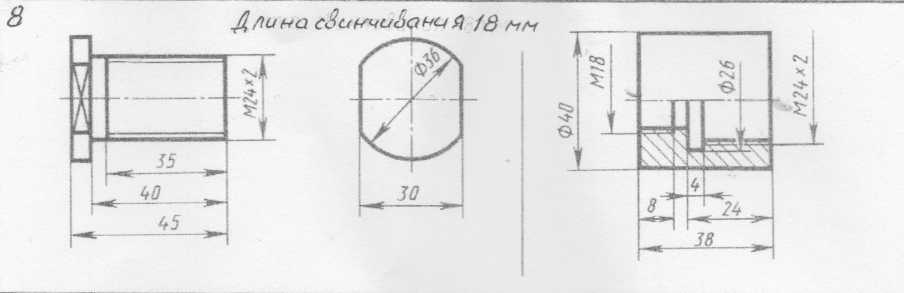 8
Длина свинчивания 18 мм
M24×2
Ф36
35
40
45
30
Ф40
M18
Ф26
M24×2
4
8
24
38